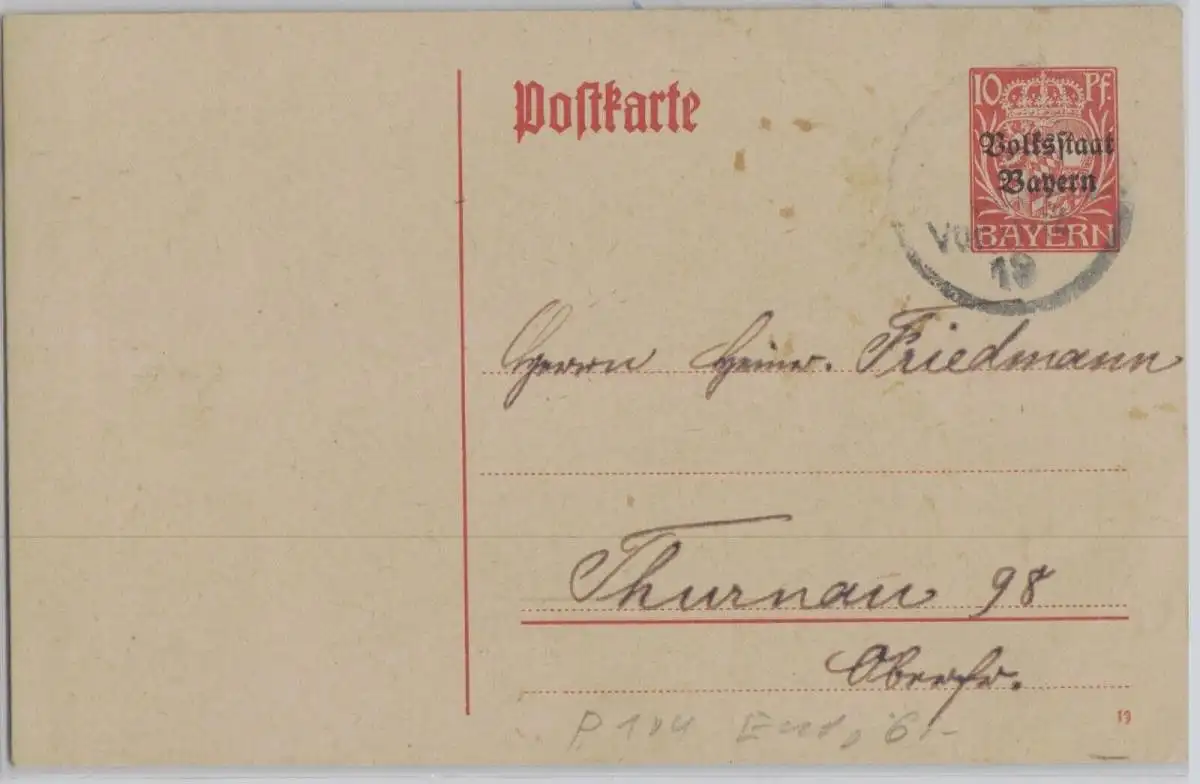 Postkarte
10 Pf.
Volksstaat
Bayern
BAYERN
19
Herrn Heinr. Friedmann
Thurnau 98
Oberfr.
P 104
6.-
19